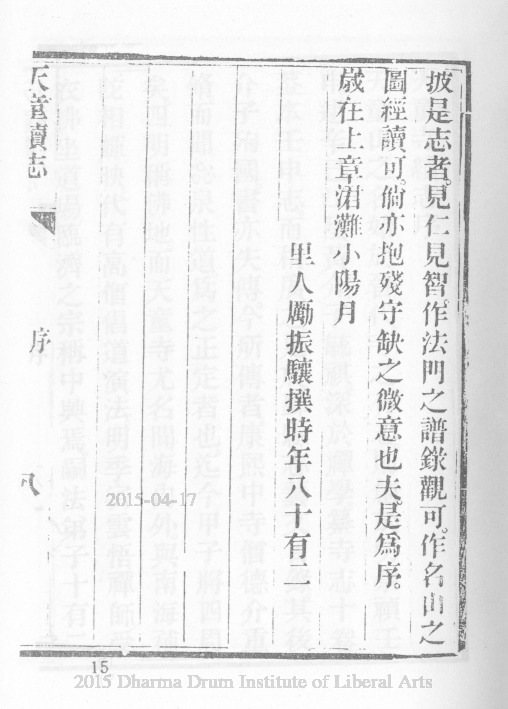 披是志者。見仁見智。作法門之譜錄觀可。作名山之
圖經讀可。倘亦抱殘守缺之微意也夫。是爲序。
歲在上章涒灘小陽月
里人勵振驤撰時年八十有二
天童續志
序
2015-04-17
15
2015 Dharma Drum Institute of Liberal Arts